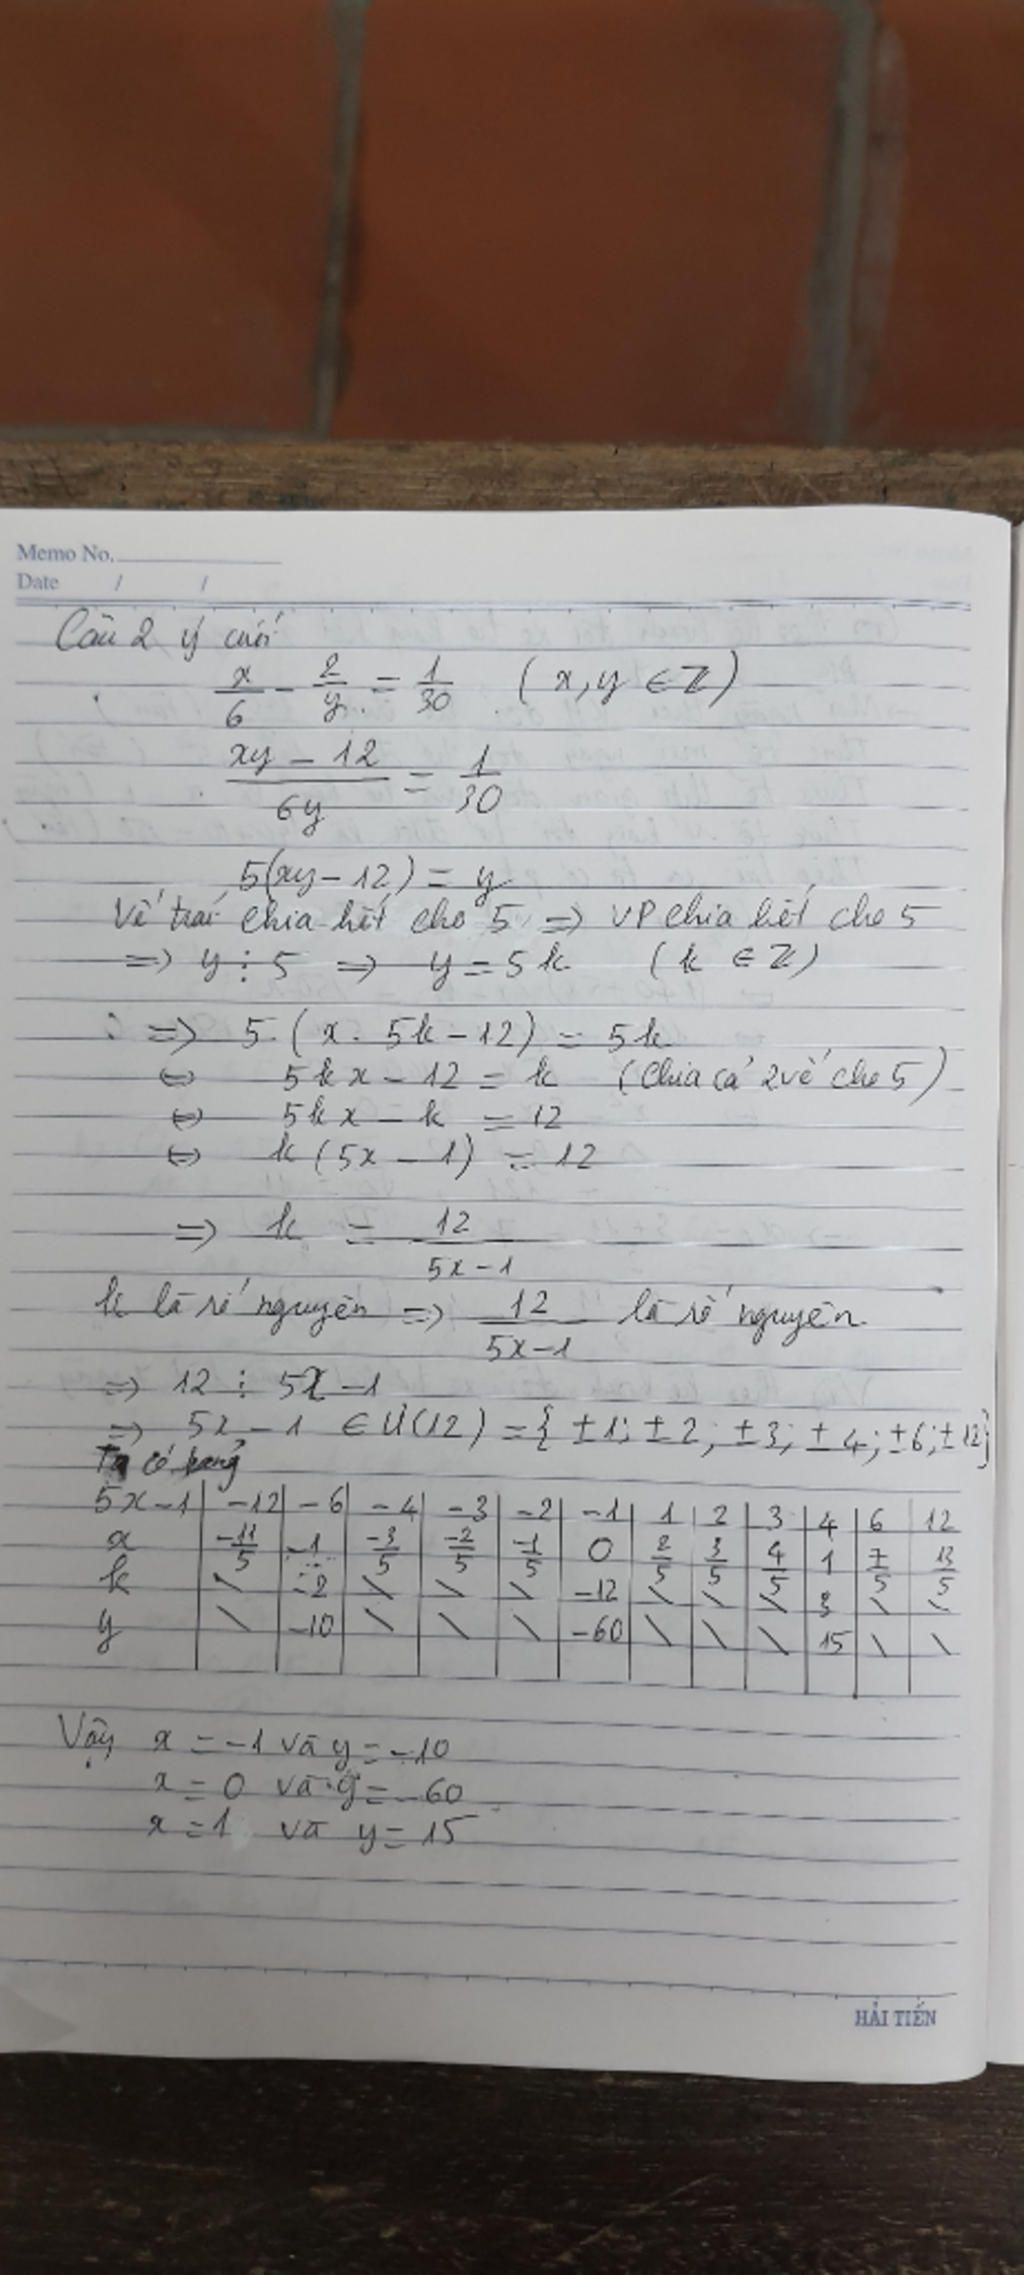 Memo No.
Date / /
Câu 2 ý cuối
x/6 - 2/y = 1/30 (x, y ∈ Z)
(xy - 12)/6y = 1/30
5(xy - 12) = y
Vế trái chia hết cho 5 => VP chia hết cho 5
=> y ⋮ 5 => y = 5k (k ∈ Z)
=> 5.(x. 5k - 12) = 5k
<=> 5kx - 12 = k (Chia cả 2 vế cho 5)
<=> 5kx - k = 12
<=> k(5x - 1) = 12
=> k = 12/(5x - 1)
k là số nguyên => 12/(5x - 1) là số nguyên
=> 12 ⋮ 5x - 1
=> 5x - 1 ∈ Ư(12) = { ±1; ±2; ±3; ±4; ±6; ±12}
Ta có bảng
5x - 1 | -12 | -6 | -4 | -3 | -2 | -1 | 1 | 2 | 3 | 4 | 6 | 12
x | -11/5 | -1 | -3/5 | -2/5 | -1/5 | 0 | 2/5 | 3/5 | 4/5 | 1 | 7/5 | 13/5
k | \ | -2 | \ | \ | \ | -12 | \ | \ | \ | 3 | \ | \
y | \ | -10 | \ | \ | \ | -60 | \ | \ | \ | 15 | \ | \
Vậy x = -1 và y = -10
x = 0 và y = -60
x = 1 và y = 15
HẢI TIẾN